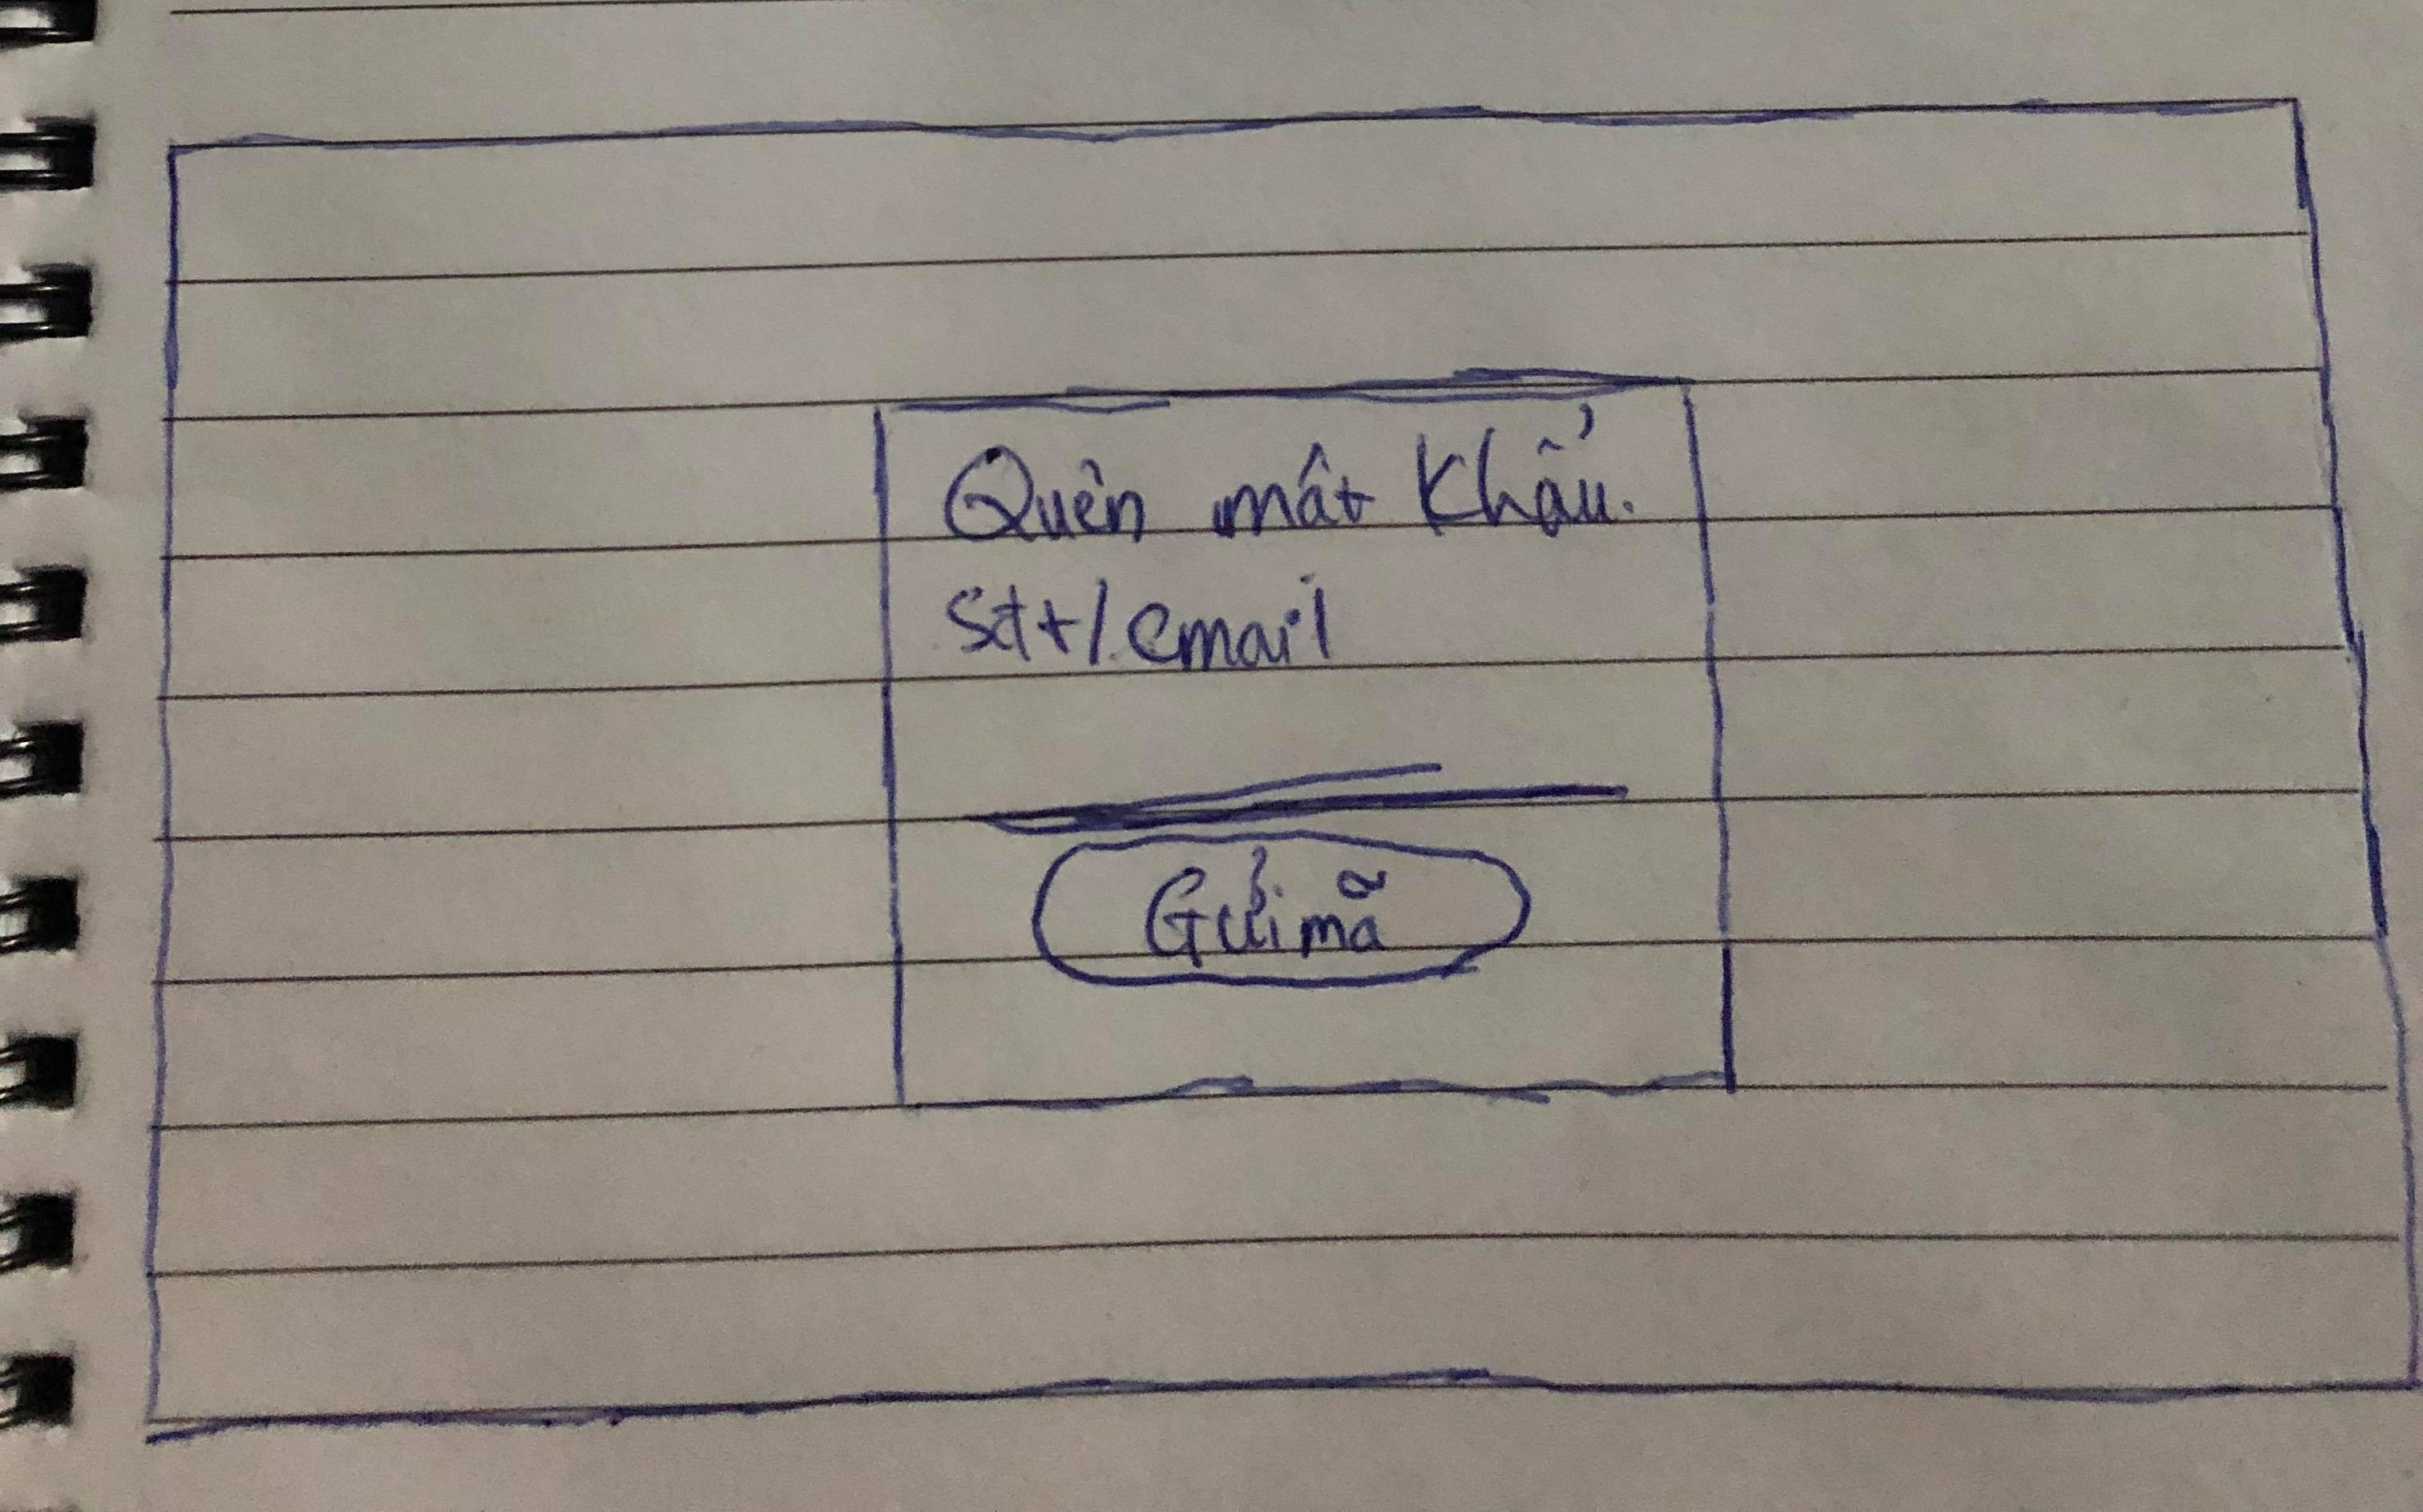 Quên mất khẩu.
Sđt/email
Gửi mã